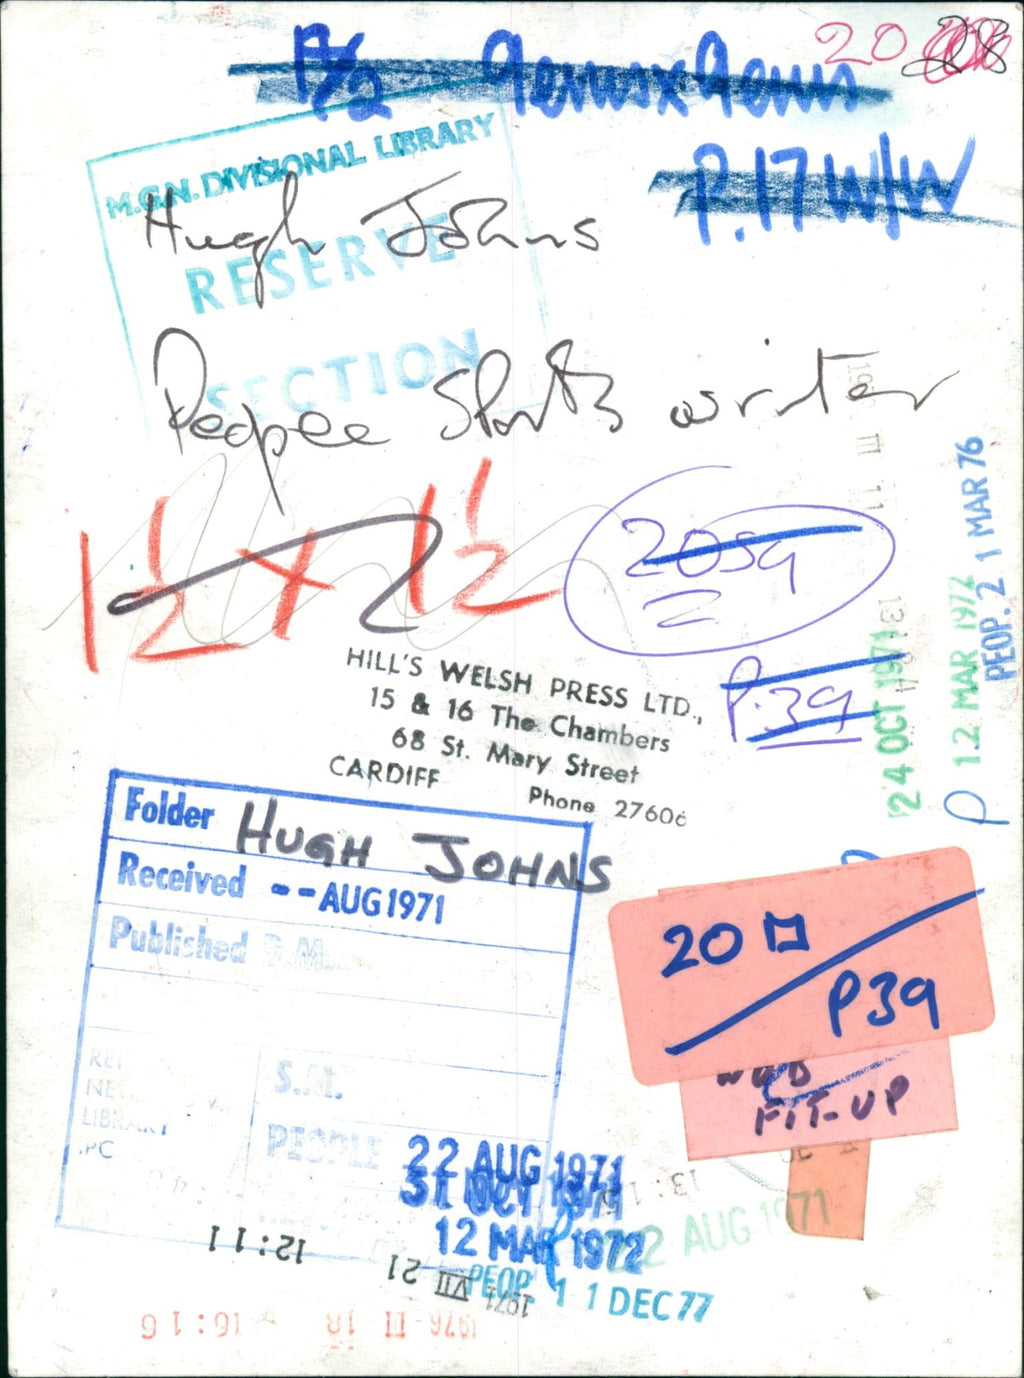 20 28
9emsx9ems
P.17 W/W
M.G.N. DIVISIONAL LIBRARY
RESERVE
SECTION
Hugh Johns
People Sports writer
1 1/2 X 1 1/2
2059
2
P.39
HILL'S WELSH PRESS LTD.,
15 & 16 The Chambers
68 St. Mary Street
CARDIFF
Phone 27606
24 OCT 1971
12 MAR 1972
PEOP. 21 MAR 76
Folder HUGH JOHNS
Received -- AUG 1971
Published D.M.
LIBRARY
S.M.
PEOPLE
22 AUG 1971
31 OCT 1971
12 MAR 1972
PEOP. 11 DEC 77
22 AUG 1971
20
P39
FIT-UP
12:11
1971 VII 21
1976 III 18
16:16